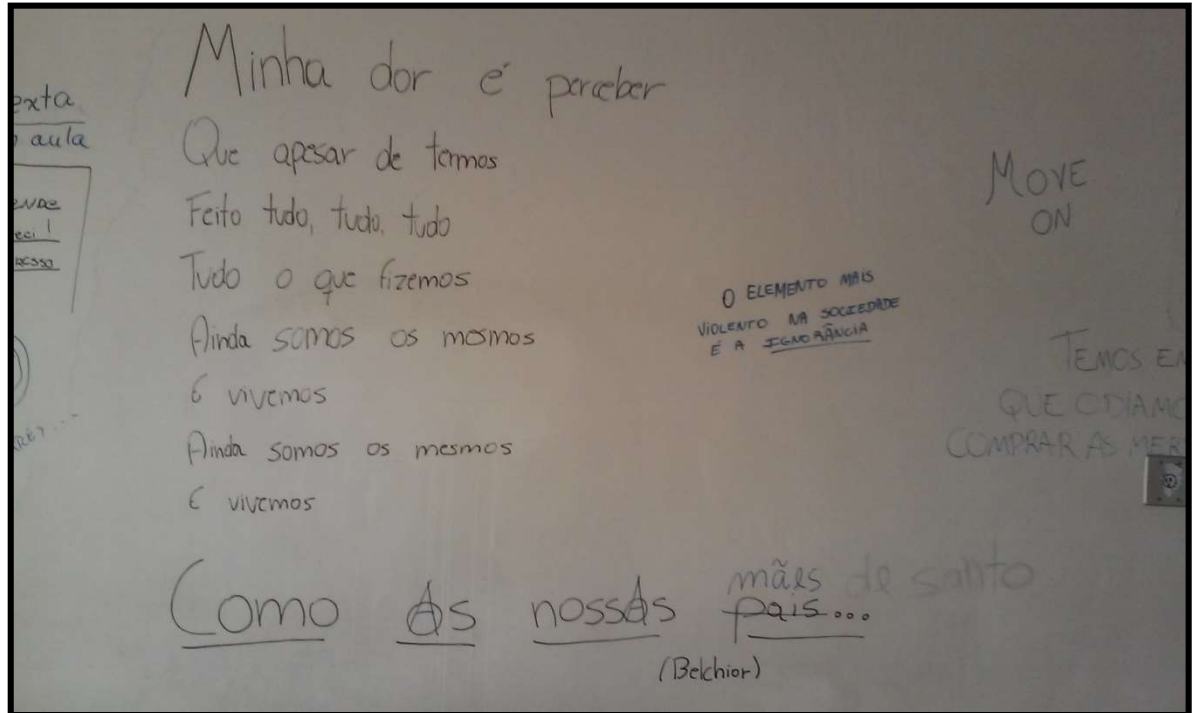 Minha dor é perceber
Que apesar de termos
Feito tudo, tudo, tudo
Tudo o que fizemos
Ainda somos os mesmos
E vivemos
Ainda somos os mesmos
E vivemos
Como As nossAs pais...
mães de santo
(Belchior)
exta
aula
O ELEMENTO MAIS
VIOLENTO NA SOCIEDADE
É A IGNORÂNCIA
MOVE
ON
TEMOS EM
QUE ODIAMO
COMPRAR AS MER